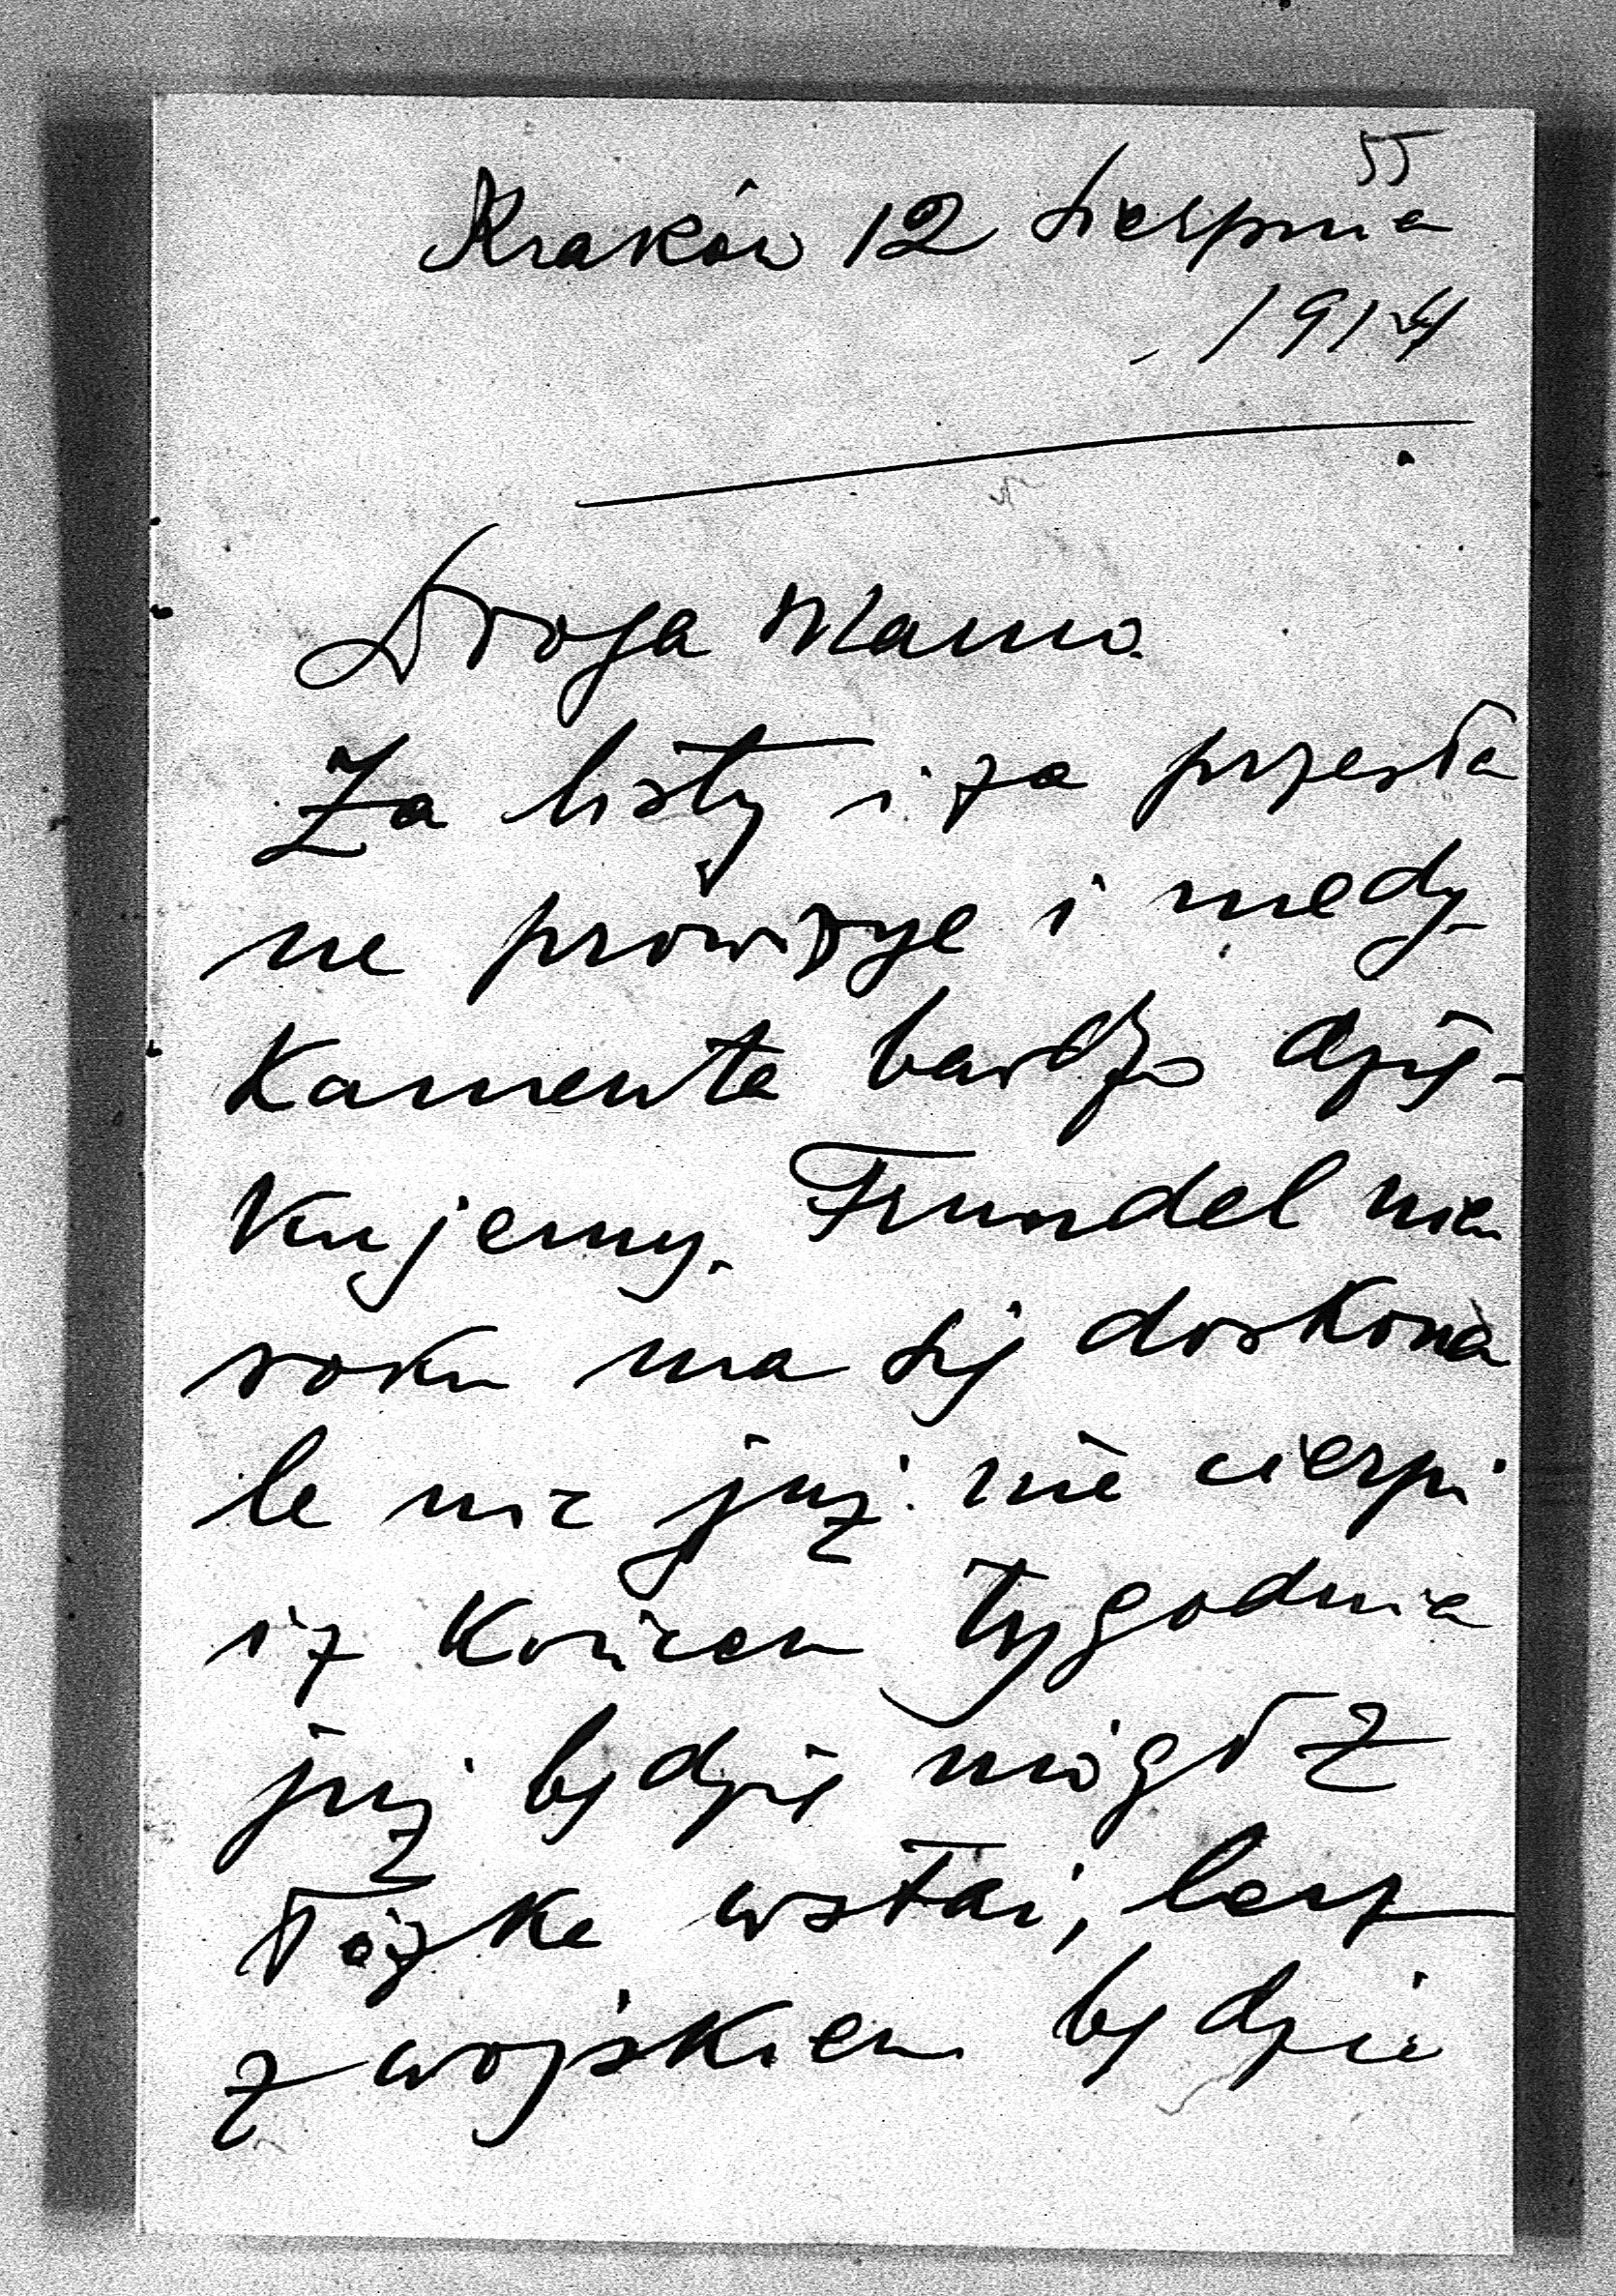 55
Kraków 12 sierpnia
1914
Droga Mamo.
Za listy i za przesła
ne prowizye i medy-
kamenta bardzo dzię-
kujemy. Frundel nie
roku ma się doskona
le nic już nie cierpi
i z końcem tygodnia
już będzie mógł z
łóżka wstać, lecz
z wojskiem będzie